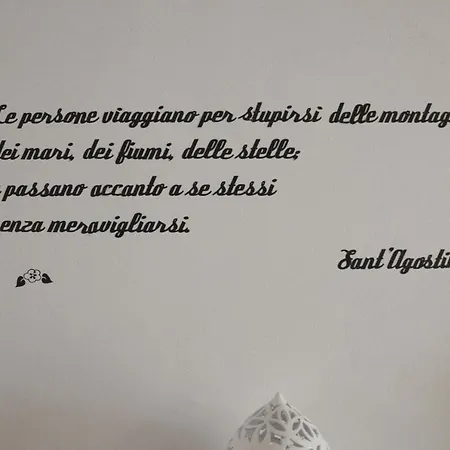 Le persone viaggiano per stupirsi delle montag
dei mari, dei fiumi, delle stelle;
e passano accanto a se stessi
senza meravigliarsi.
Sant'Agosti